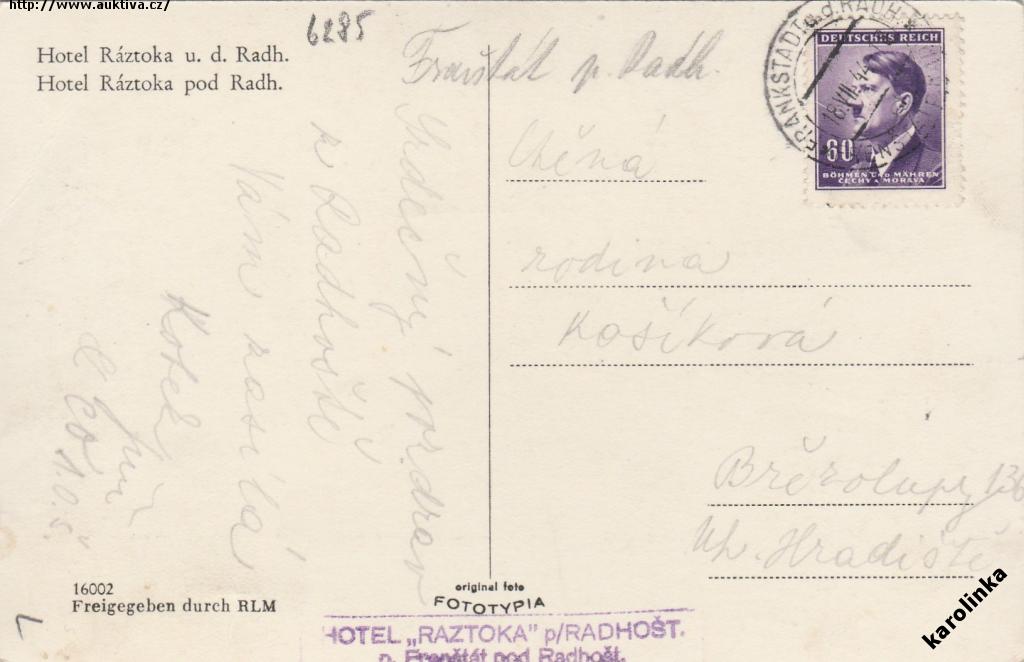 http://www.auktiva.cz/
6285
Hotel Ráztoka u. d. Radh.
Hotel Ráztoka pod Radh.
Frenštát p. Radh.
Srdečný pozdrav
z Radhoště
Vám zasílá
FRANKSTADT u. d. RADH.
18.VII.44
DEUTSCHES REICH
60
BÖHMEN UND MÄHREN
ČECHY A MORAVA
Ctěná
rodina
Košíková
Břézolupy 136
Uh. Hradiště
16002
Freigegeben durch RLM
original foto
FOTOTYPIA
HOTEL „RAZTOKA" p/RADHOŠT.
p. Frenštát pod Radhošt.
karolinka